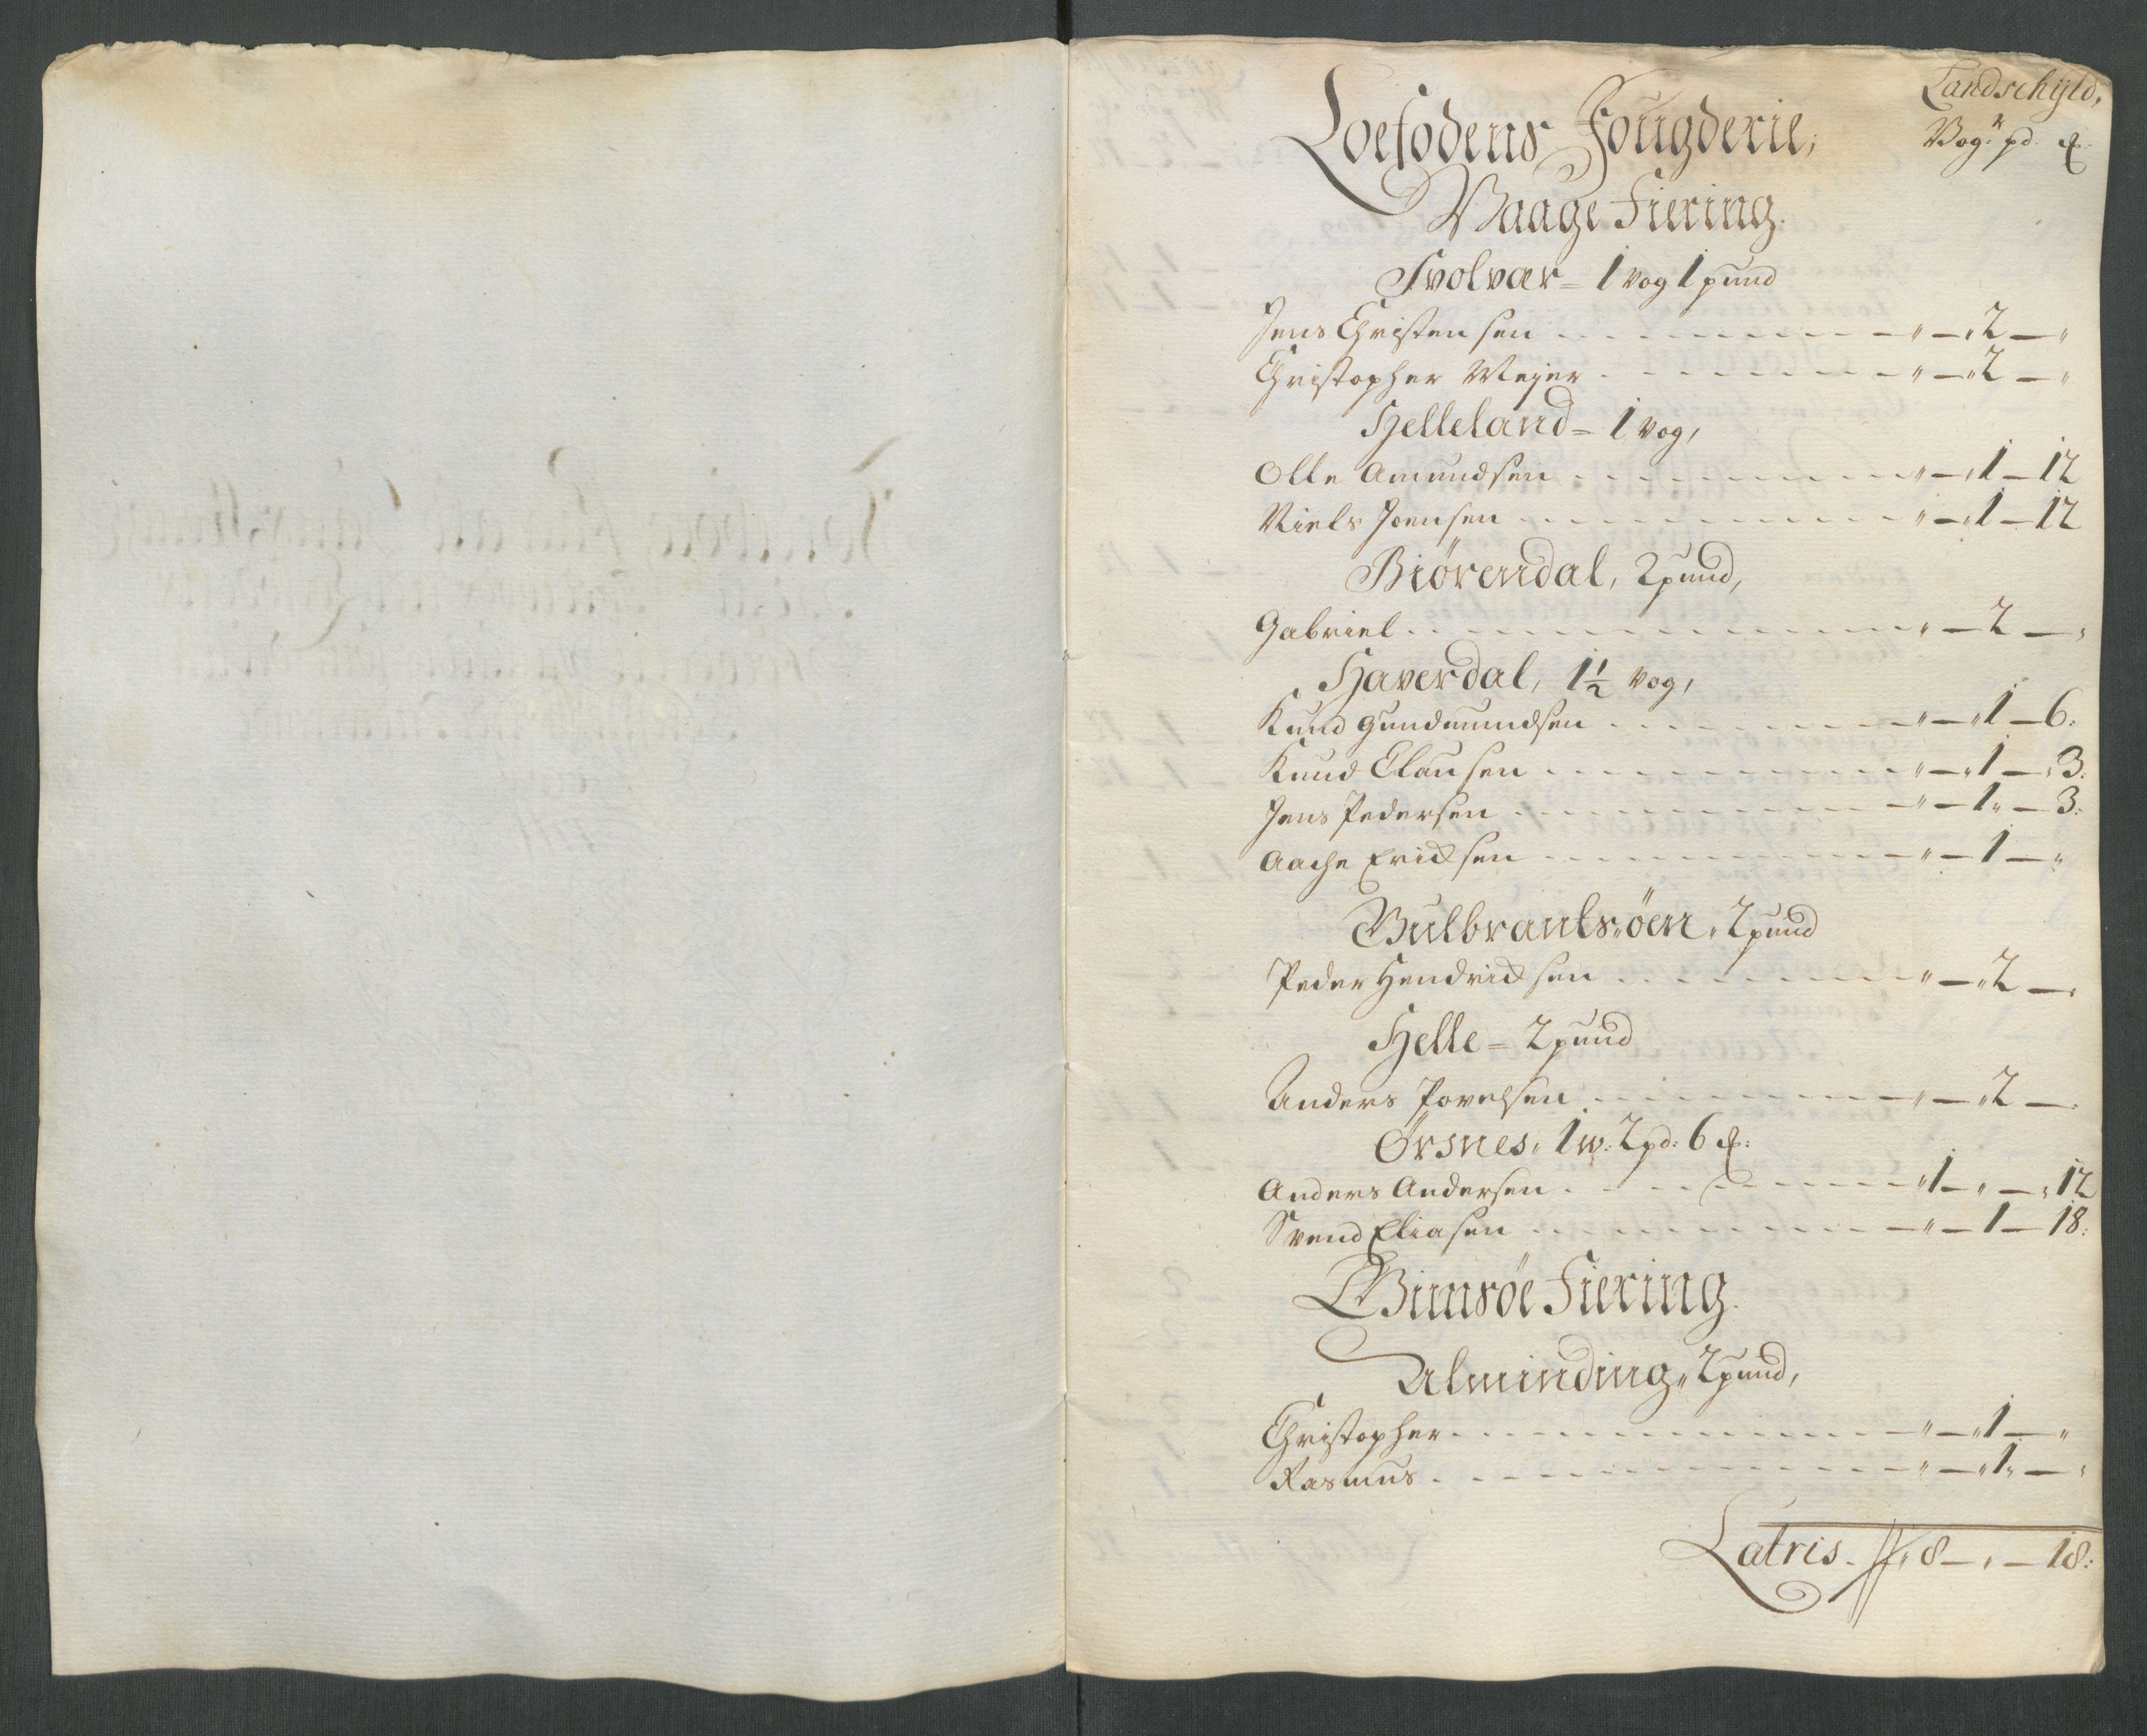 Landschyld,
Loefodens Fougderie,
Vog: pd: ℔:
Waage Fiering.
Svolvær = 1 vog 1 pund
Jens Christensen „ — 2 — „
Christopher Meyer „ — 2 — „
Helleland = 1 vog,
Olle Amundsen „ — 1 — 12
Niels Joensen „ — 1 — 12
Biørendal, 2 pund,
Gabriel „ — 2 — „
Haverdal, 1½ vog,
Knud Gundmundsen „ — 1 — 6:
Knud Clausen „ — 1 — 3:
Jens Pedersen „ — 1 — 3:
Aache Ericksen „ — 1 — „
Gulbrants øen, 2 pund
Peder Hendricksen „ — 2 — „
Helle = 2 pund
Anders Povelsen „ — 2 — „
Ørsnes, 1 w: 2 pd: 6 ℔:
Anders Andersen „ 1 — „ — 12
Svend Eliasen „ — 1 — 18:
Gimsøe Fiering.
Alminding, 2 pund,
Christopher „ — 1 — „
Rasmus „ — 1 — „
Latris 8 — „ — 18: